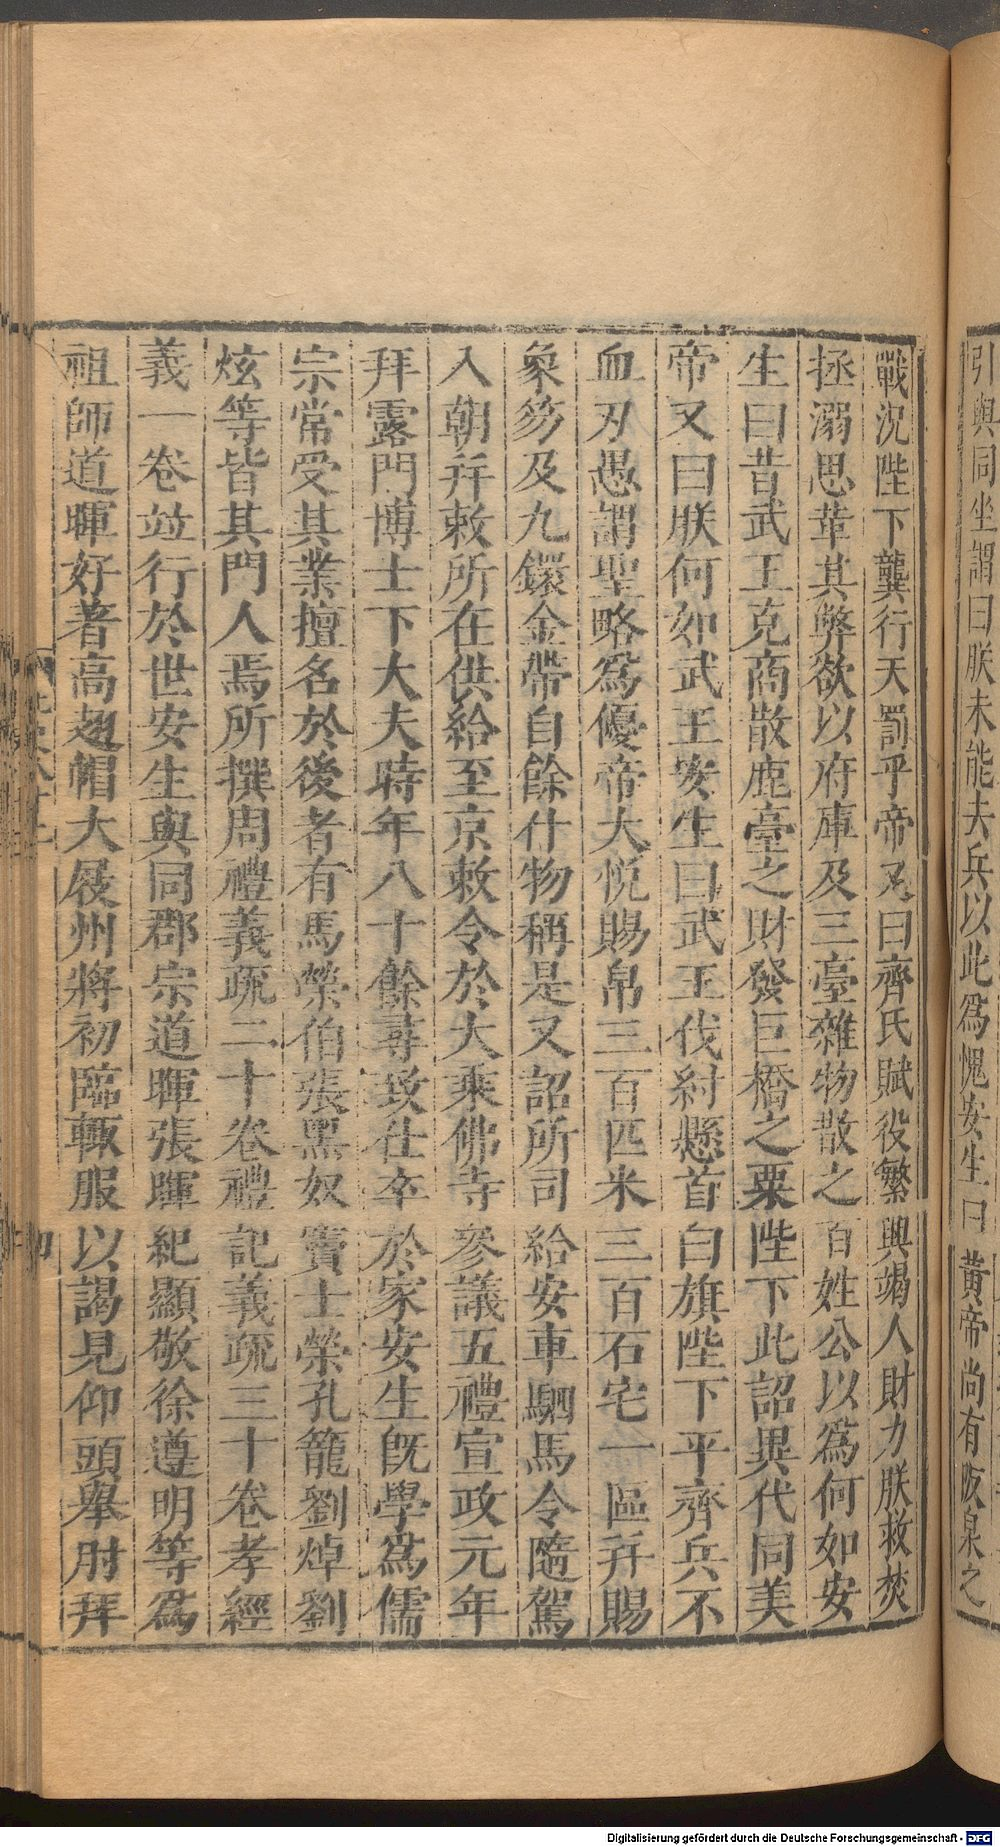 引與同坐謂曰朕未能去兵以此爲愧安生曰黃帝尚有阪泉之
戰況陛下龔行天罰乎帝又曰齊氏賦役繁興竭人財力朕救焚
拯溺思革其弊欲以府庫及三臺雜物散之百姓公以爲何如安
生曰昔武王克商散鹿臺之財發巨橋之粟陛下此詔異代同美
帝又曰朕何如武王安生曰武王伐紂懸首白旗陛下平齊兵不
血刃愚謂聖略爲優帝大悅賜帛三百匹米三百石宅一區幷賜
象笏及九鐶金帶自餘什物稱是又詔所司給安車駟馬令隨駕
入朝幷敕所在供給至京敕令於大乘佛寺參議五禮宣政元年
拜露門博士下大夫時年八十餘尋致仕卒於家安生旣學爲儒
宗常受其業擅名於後者有馬榮伯張黑奴竇士榮孔籠劉焯劉
炫等皆其門人焉所撰周禮義疏二十卷禮記義疏三十卷孝經
義一卷竝行於世安生與同郡宗道暉張暉紀顯敬徐遵明等爲
祖師道暉好著高翅帽大屐州將初臨輒服以謁見仰頭舉肘拜
Digitalisierung gefördert durch die Deutsche Forschungsgemeinschaft - DFG